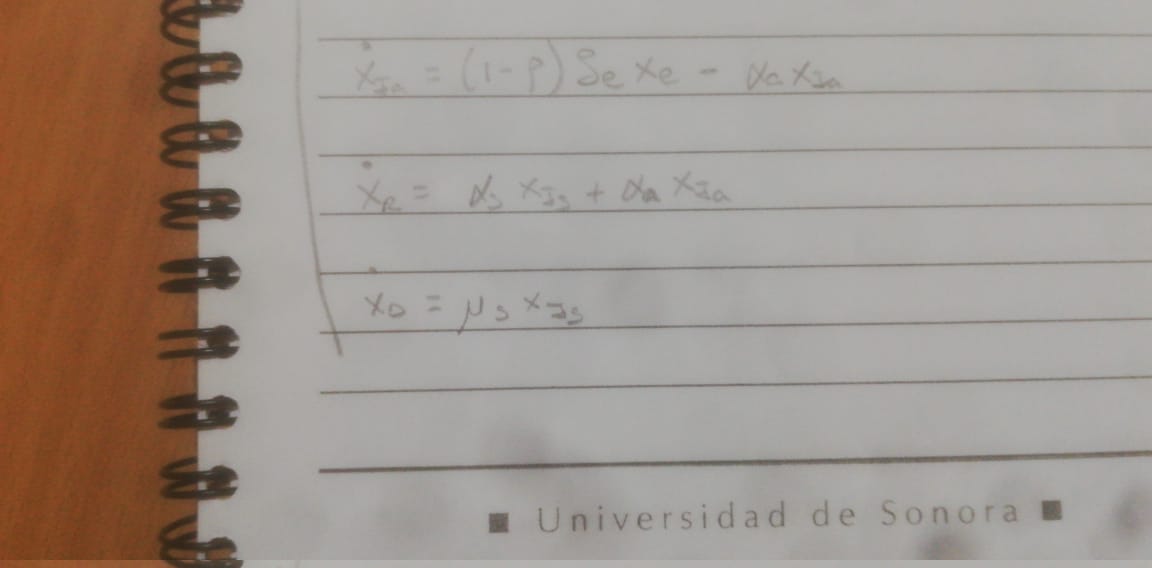 ẋ_Ia = (1-p) δe xe - αa x_Ia
ẋ_R = αs x_Is + αa x_Ia
ẋ_D = μs x_Is
■ Universidad de Sonora ■